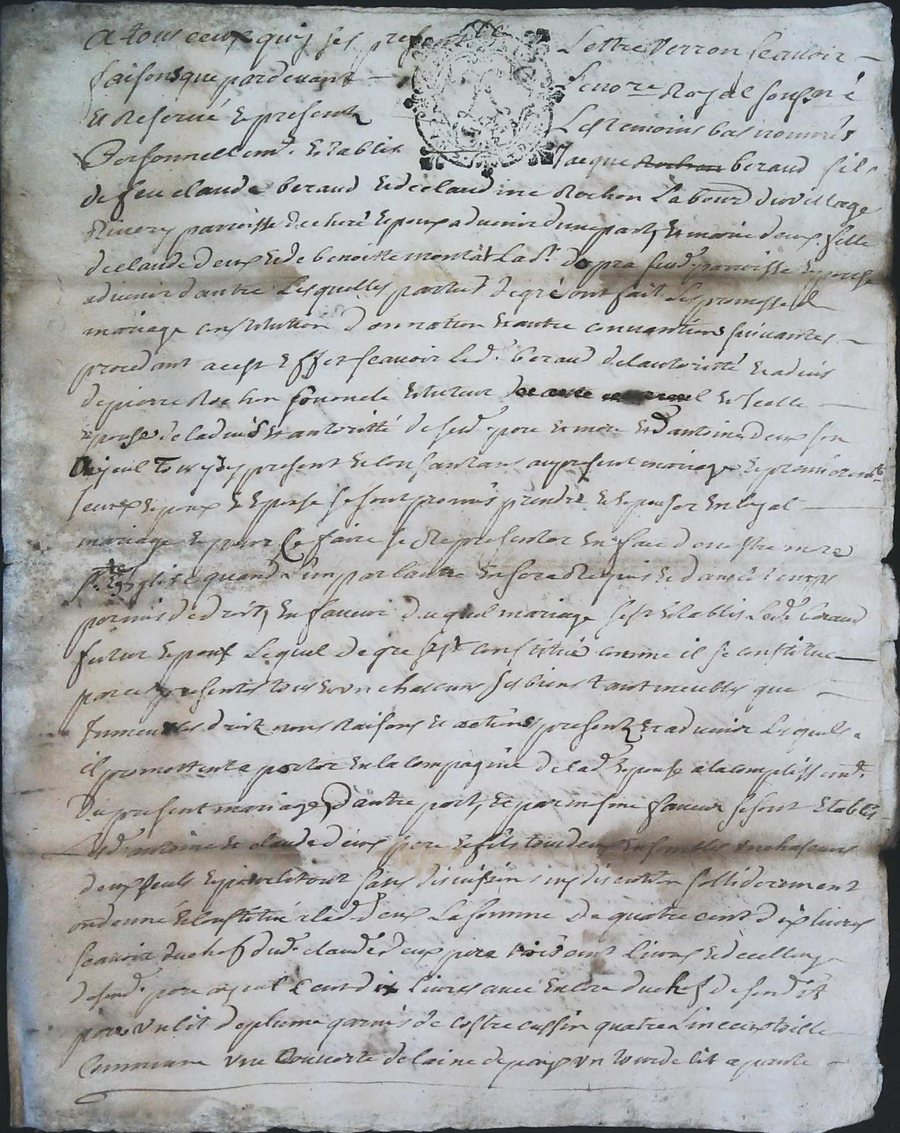 A tous ceux quy ses presentes Lettre verron scavoir
faisons que pardevant Lenore Royal soussné
et Reservé e presents Les temoins bas nommés
Personnellemt. Establis Jacque beraud fils
de feu claude beraud et de claudine Rochon Labourr du village
parroisse de cheré epoux advenir d'une part, et marie deux fille
de claude deux et de benoitte montat Lad. parroisse epouse
advenir d'autre Lesquelles parties de gré ont fait Les promesse de
mariage constitution donnation et autre convantions suivantes
procedant a cest effet scavoir Led. beraud de l'autorité et advis
de pierre Rochon son oncle et tuteur et icelle
epouse de l'advis et autoritté de sesd. pere et mere et d'antoine deux son
ayeul Tous yci present et consantans au present mariage
futurs epoux et epouse se sont promis prendre et epouser en legal
mariage et pour Ce faire se Representer en face de nostre mere
Ste Eglise quand L'un par l'autre en sera Requis et dans le temps
permis de droit, en faveur duquel mariage s'est establis Led. beraud
futur epoux Lequel de gre s'est constitué comme il se constitue
par ces presentes tous et un chascuns ses biens tant meubles que
Immeubles droits noms Raisons et actions present et advenir Lesquels
il promettent a porter en la compagnie de lad. epouse a l'acomplissemt.
Du present mariage, D'autre part, et par mesme faveur se sont establis
Lesd. antoine et claude deux pere et fils tous deux ensembles un chascuns
deux seuls et pour le tout sans division ny discution sollidairement
ont donné et constitué a lad. deux La somme de quatre cent dix livres
scavoir du chef dud. claude deux pere trois cent Livres et de celluy
de sond. pere ayeul Cent dix Livres avec encore du chef de sond. fils
pere un lit de plume garnis de coitre cussin quatre Linceuls toille
Commune une Couverte de laine de pays un tour de lit